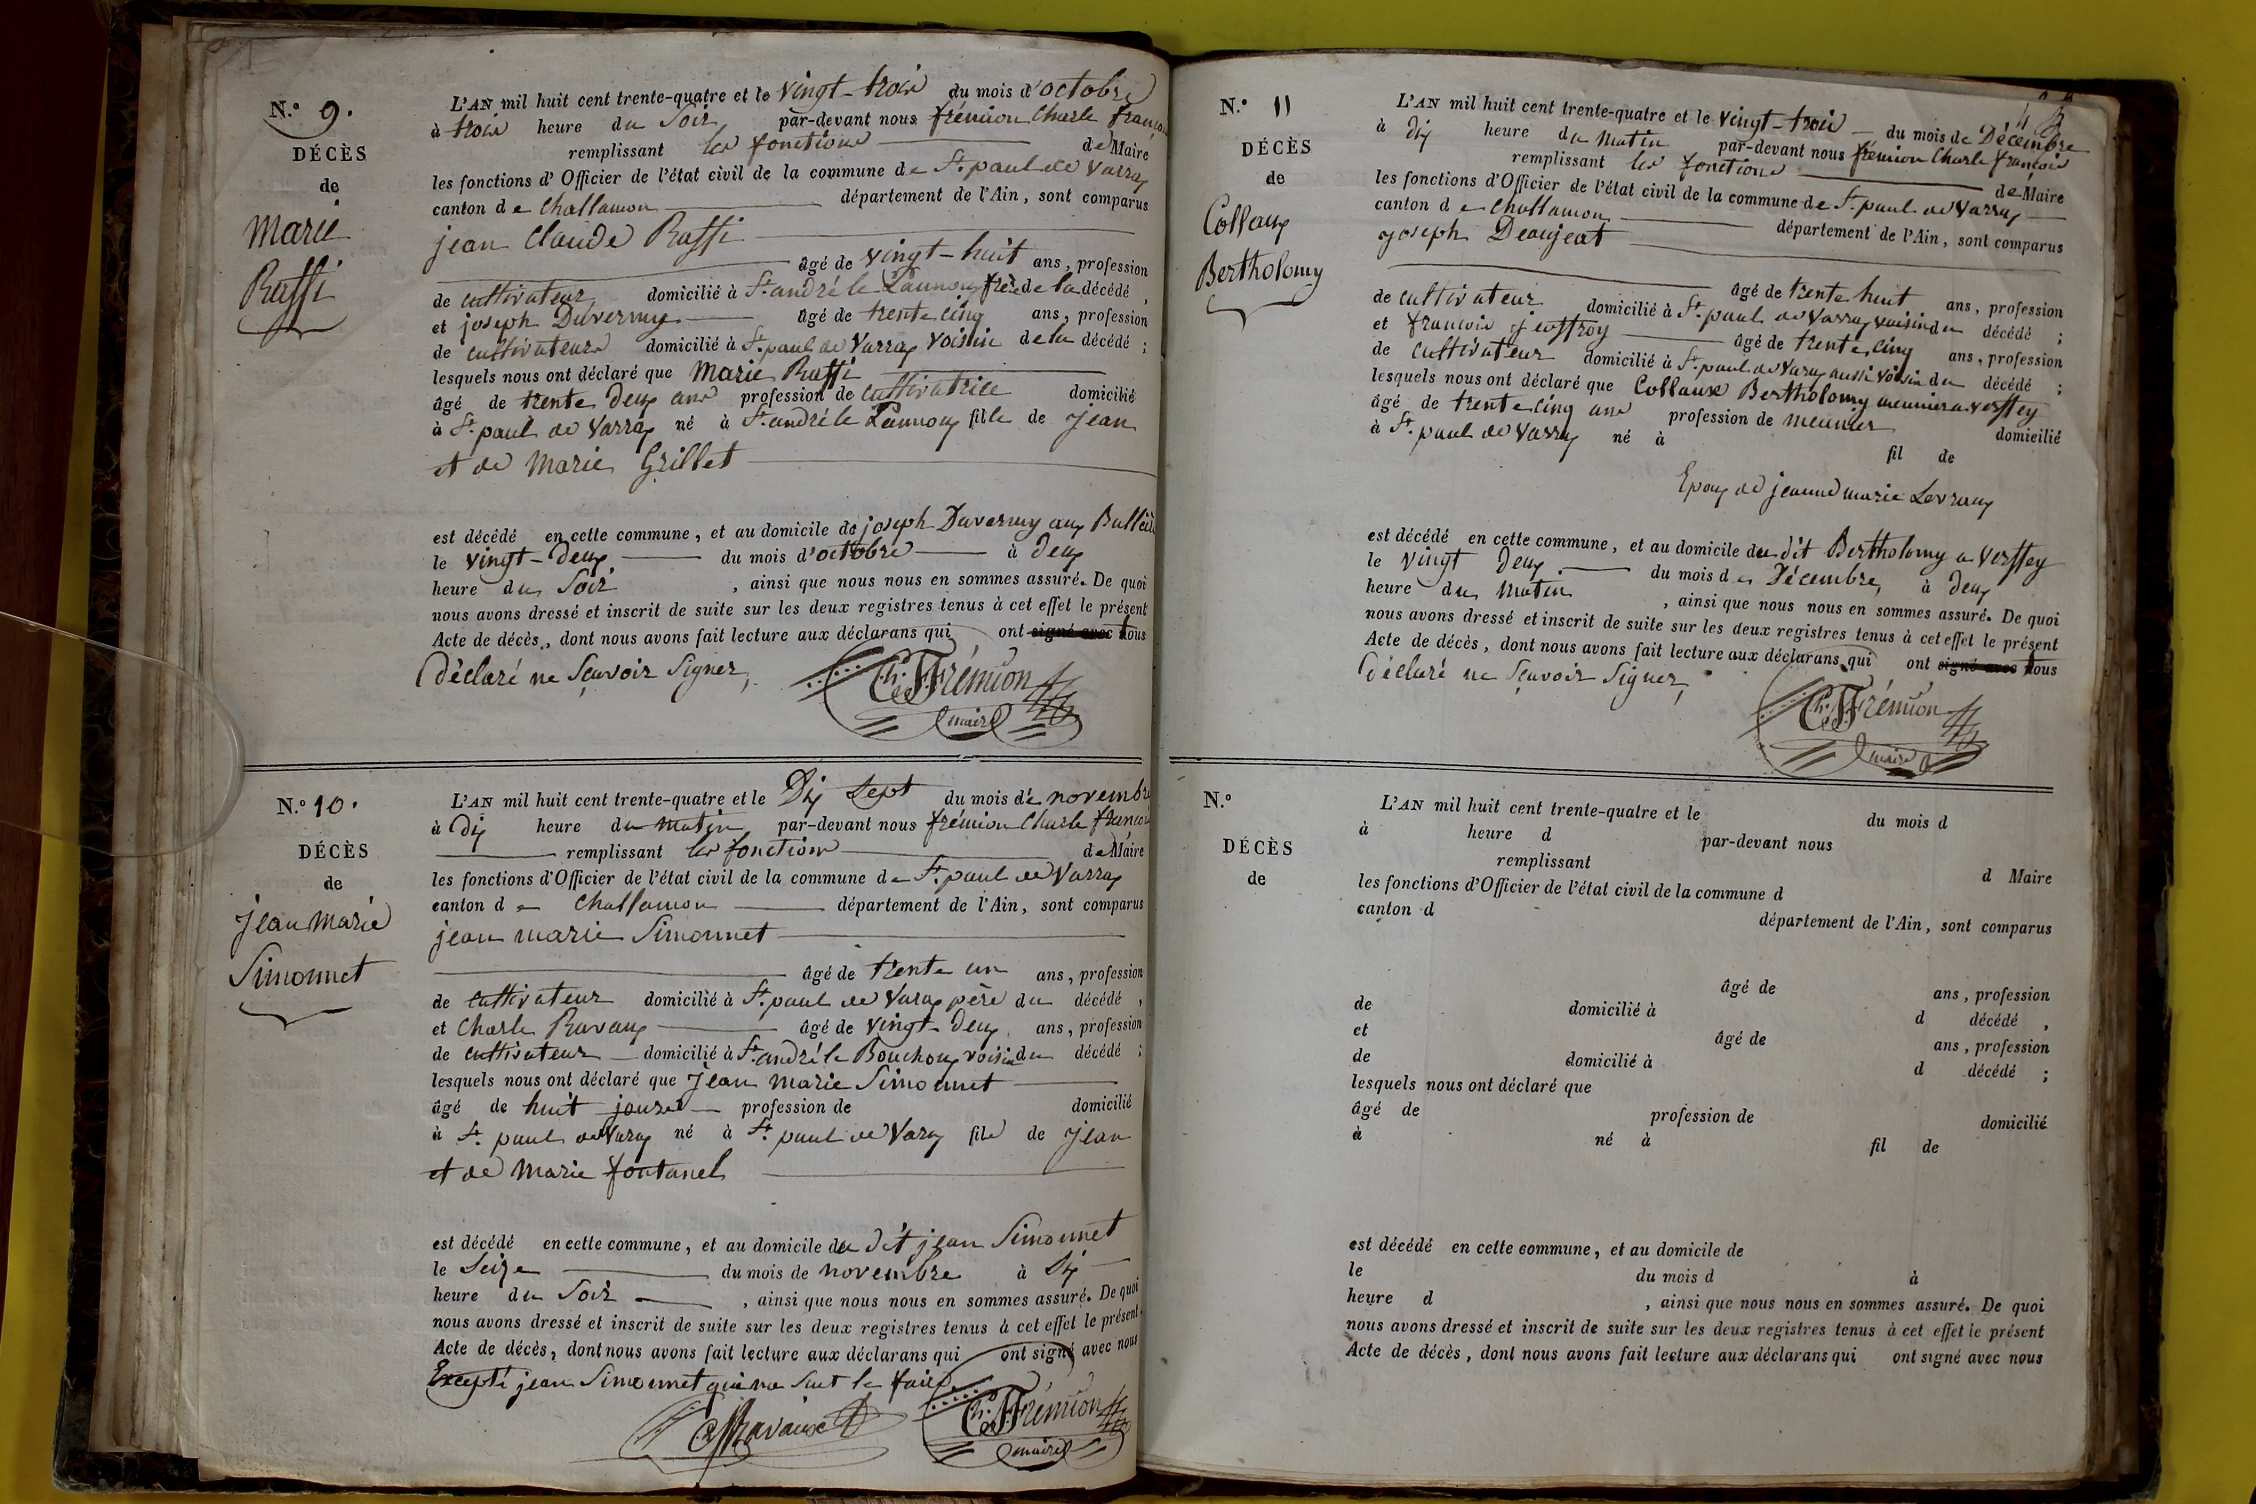 N.º 9.
DÉCÈS
de
Marie
Raffi
L'AN mil huit cent trente-quatre et le vingt-trois du mois d'octobre
à trois heure du Soir par-devant nous frémion Charle françois
remplissant les fonctions de Maire
les fonctions d'Officier de l'état civil de la commune de St. paul de Varray
canton de Challamon département de l'Ain, sont comparus
jean Claude Raffi
âgé de vingt-huit ans, profession
de cultivateur domicilié à St. andré le Pannoux frère de la décédé,
et joseph Duvernay âgé de trente cinq ans, profession
de cultivateur domicilié à St. paul de Varray voisin de la décédé;
lesquels nous ont déclaré que Marie Raffi
âgé de trente deux ans profession de cultivatrice domicilié
à St. paul de Varray né à St. andré le Pannoux fille de jean
et de Marie Grillet
est décédé en cette commune, et au domicile de joseph Duvernay aux
le vingt-deux du mois d'octobre à deux
heure du Soir, ainsi que nous nous en sommes assuré. De quoi
nous avons dressé et inscrit de suite sur les deux registres tenus à cet effet le présent
Acte de décès, dont nous avons fait lecture aux déclarans qui ont signé avec tous
déclaré ne Sçavoir Signer,
Ch. F. Frémion
maire
N.º 10.
DÉCÈS
de
jean Marie
Simonnet
L'AN mil huit cent trente-quatre et le Dix Sept du mois de novembre
à Dix heure du matin par-devant nous frémion Charle françois
remplissant les fonctions de Maire
les fonctions d'Officier de l'état civil de la commune de St. paul de Varray
canton de Challamon département de l'Ain, sont comparus
jean marie Simonnet
âgé de trente un ans, profession
de cultivateur domicilié à St. paul de Varax père du décédé,
et Charle Ravaux âgé de vingt-deux ans, profession
de cultivateur domicilié à St. andré le Bouchoux voisin du décédé;
lesquels nous ont déclaré que jean Marie Simonnet
âgé de huit jours profession de domicilié
à St. paul de Varax né à St. paul de Varax fils de jean
et de Marie fontanel
est décédé en cette commune, et au domicile du dit jean Simonnet
le Seize du mois de novembre à Dix
heure du Soir, ainsi que nous nous en sommes assuré. De quoi
nous avons dressé et inscrit de suite sur les deux registres tenus à cet effet le présent
Acte de décès, dont nous avons fait lecture aux déclarans qui ont signé avec nous
Excepté jean Simonnet qui ne Sait le faire
Ravaux
Ch. F. Frémion
maire
N.º 11
DÉCÈS
de
Collaux
Bertholomy
L'AN mil huit cent trente-quatre et le vingt-trois du mois de Décembre
à dix heure du Matin par-devant nous frémion Charle françois
remplissant les fonctions de Maire
les fonctions d'Officier de l'état civil de la commune de St. paul de Varray
canton de Challamon département de l'Ain, sont comparus
joseph Deaujeat
âgé de trente huit ans, profession
de cultivateur domicilié à St. paul de Varray voisin du décédé;
et francois jeoffroy âgé de trente cinq ans, profession
de cultivateur domicilié à St. paul de Varay aussi voisin du décédé;
lesquels nous ont déclaré que Collaux Bertholomy meunier a verffey
âgé de trente cinq ans profession de meunier domicilié
à St. paul de Varray né à fil de
Epoux de jeanne marie Levraux
est décédé en cette commune, et au domicile du dit Bertholomy a verffey
le vingt deux du mois de Décembre, à deux
heure du matin, ainsi que nous nous en sommes assuré. De quoi
nous avons dressé et inscrit de suite sur les deux registres tenus à cet effet le présent
Acte de décès, dont nous avons fait lecture aux déclarans qui ont signé avec tous
déclaré ne Sçavoir Signer,
Ch. F. Frémion
maire
N.º
DÉCÈS
de
L'AN mil huit cent trente-quatre et le du mois d
à heure d par-devant nous
remplissant d Maire
les fonctions d'Officier de l'état civil de la commune d
canton d département de l'Ain, sont comparus
âgé de ans, profession
de domicilié à d décédé,
et âgé de ans, profession
de domicilié à d décédé;
lesquels nous ont déclaré que
âgé de profession de domicilié
à né à fil de
est décédé en cette commune, et au domicile de
le du mois d à
heure d, ainsi que nous nous en sommes assuré. De quoi
nous avons dressé et inscrit de suite sur les deux registres tenus à cet effet le présent
Acte de décès, dont nous avons fait lecture aux déclarans qui ont signé avec nous